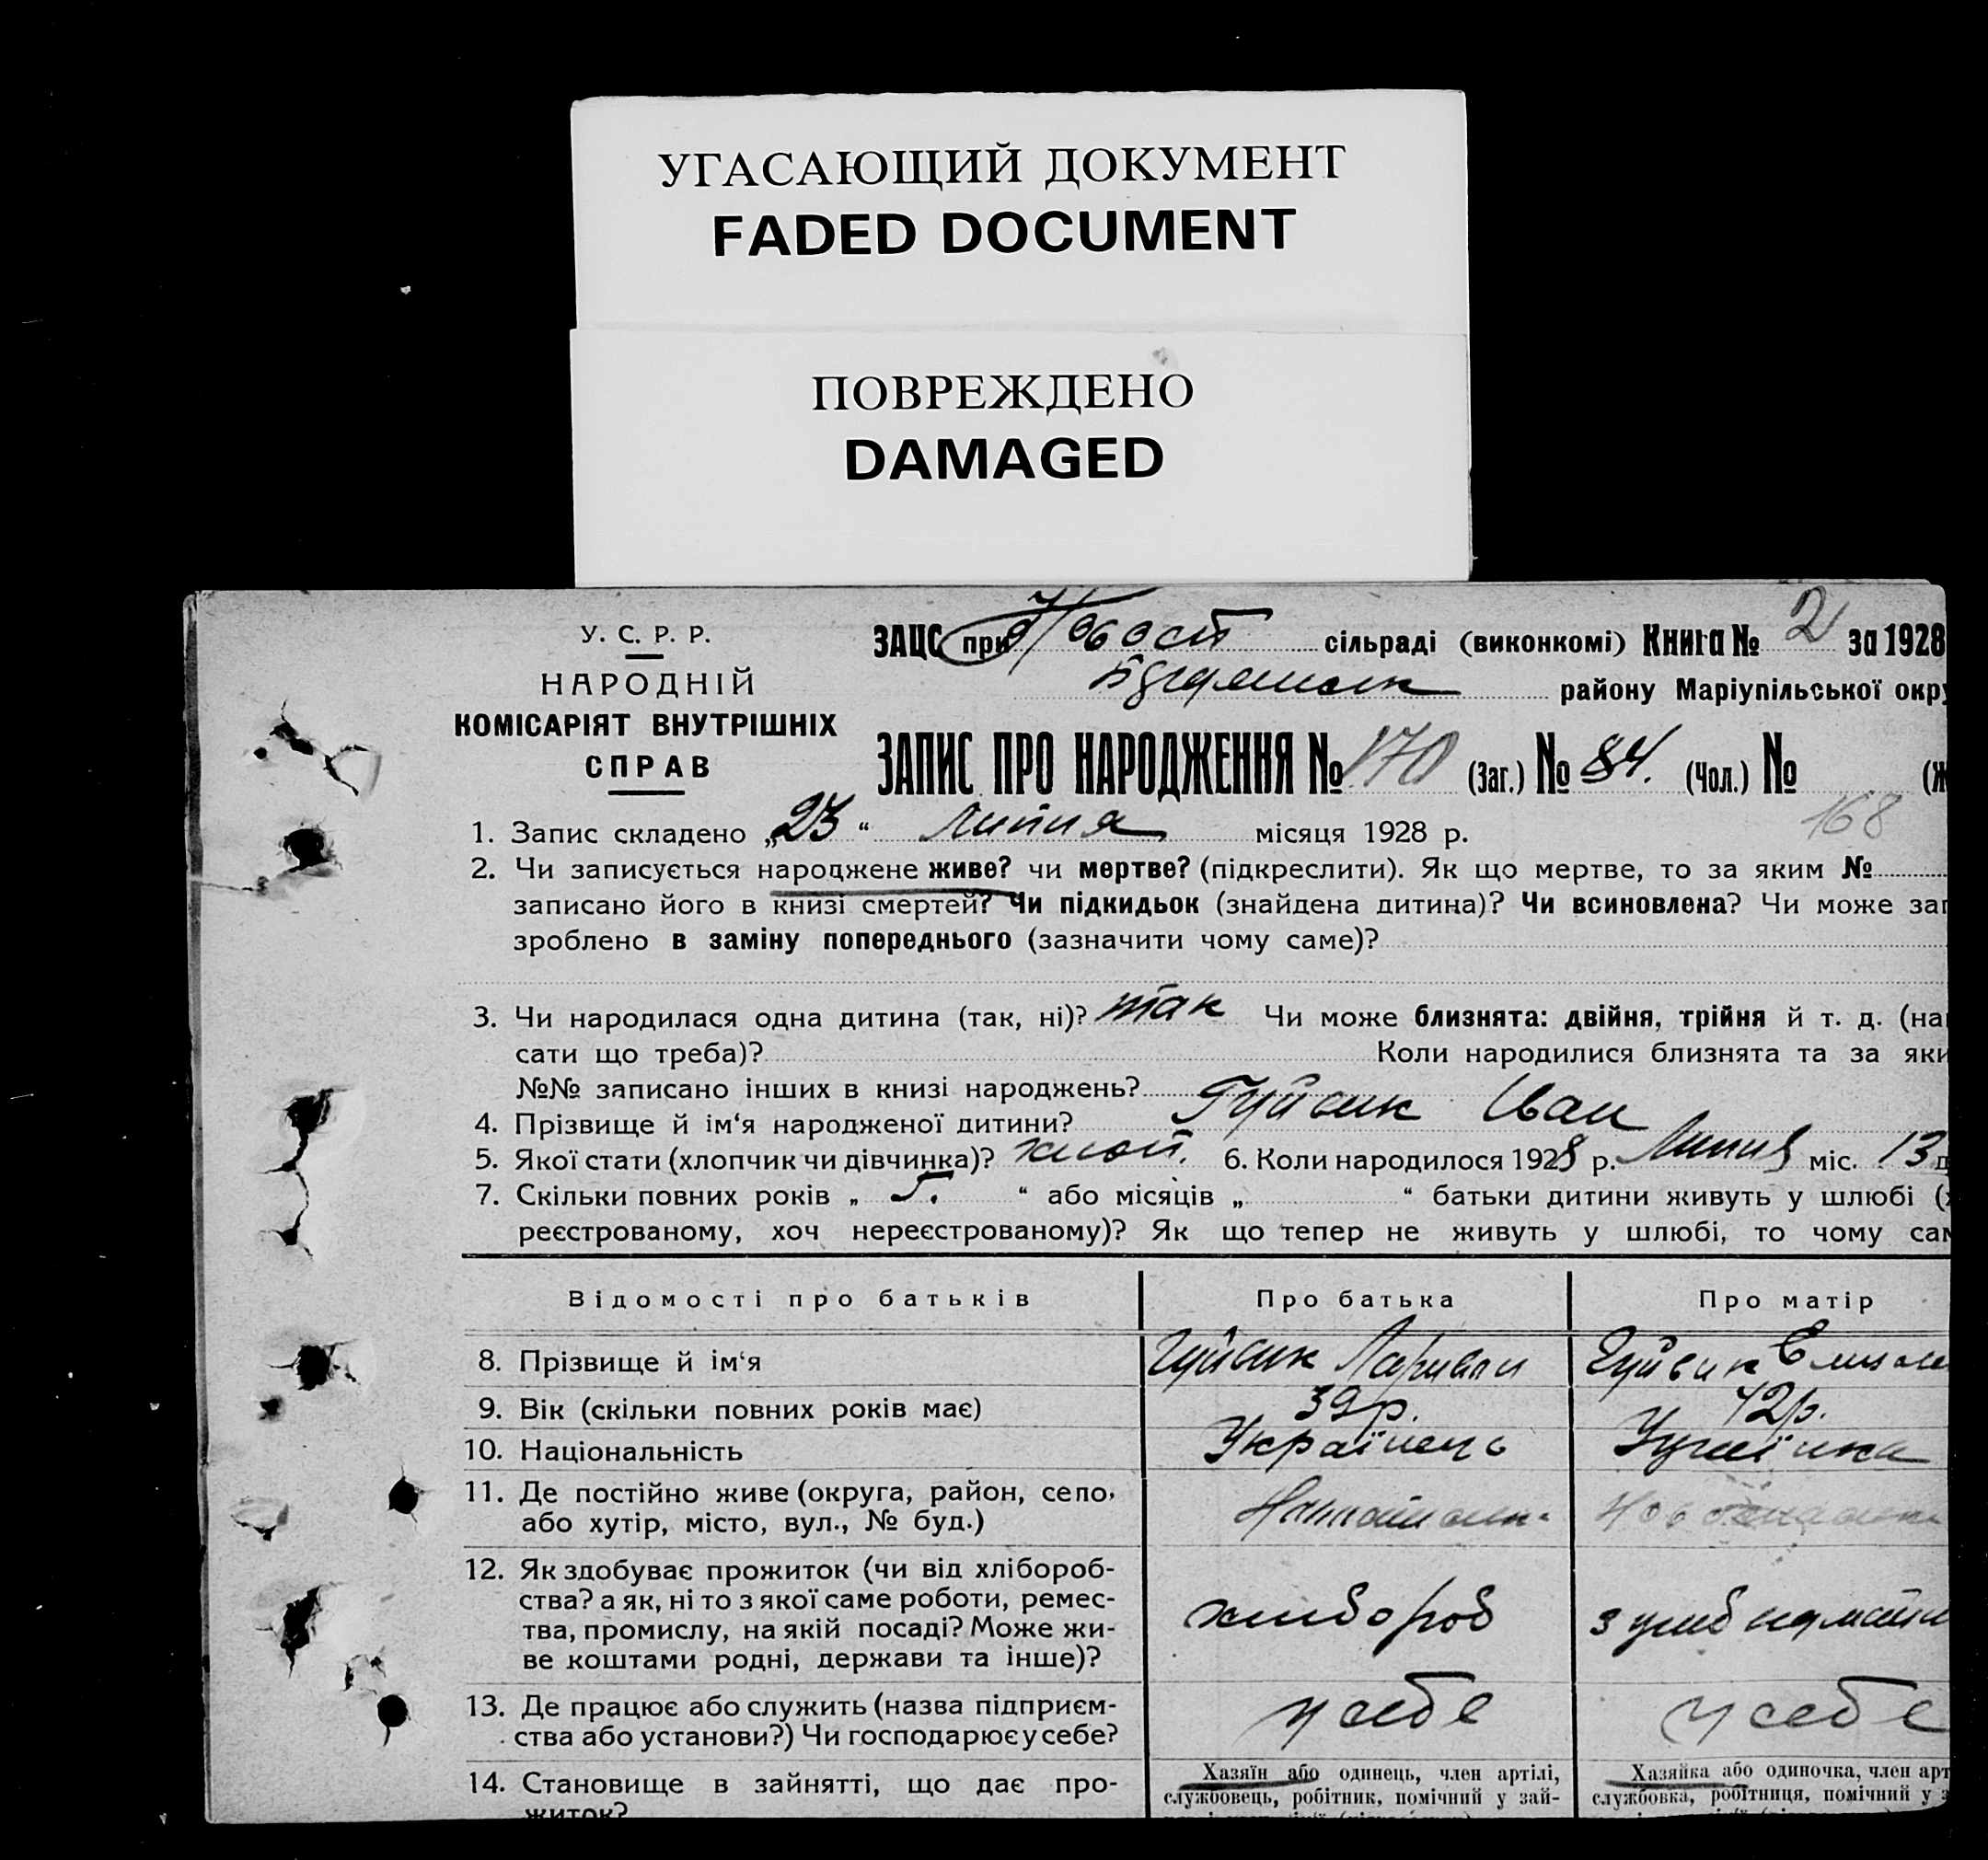 УГАСАЮЩИЙ ДОКУМЕНТ
FADED DOCUMENT
ПОВРЕЖДЕНО
DAMAGED
У. С. Р. Р.
НАРОДНІЙ
КОМІСАРІЯТ ВНУТРІШНІХ
СПРАВ
ЗАЦС при сільраді (виконкомі) Книга № 2 за 1928
району Маріупільської окру
ЗАПИС ПРО НАРОДЖЕННЯ № 170 (Заг.) № 84. (Чол.) № (Ж
168
1. Запис складено „23“ Липня місяця 1928 р.
2. Чи записується народжене живе? чи мертве? (підкреслити). Як що мертве, то за яким №
записано його в книзі смертей? Чи підкидьок (знайдена дитина)? Чи всиновлена? Чи може зап
зроблено в заміну попереднього (зазначити чому саме)?
3. Чи народилася одна дитина (так, ні)? так Чи може близнята: двійня, трійня й т. д. (на
сати що треба)? Коли народилися близнята та за яки
№№ записано інших в книзі народжень?
4. Прізвище й ім‘я народженої дитини? Гуйвик Іван
5. Якої стати (хлопчик чи дівчинка)? хлоп. 6. Коли народилося 1928 р. Липня міс. 13 д
7. Скільки повних років „ 5. “ або місяців „ “ батьки дитини живуть у шлюбі (х
реєстрованому, хоч нереєстрованому)? Як що тепер не живуть у шлюбі, то чому сам
Відомості про батьків Про батька Про матір
8. Прізвище й ім‘я Гуйвик Гуйвик
9. Вік (скільки повних років має) 39 р. 42 р.
10. Національність Українець
11. Де постійно живе (округа, район, село,
або хутір, місто, вул., № буд.)
12. Як здобуває прожиток (чи від хлібороб-
ства? а як, ні то з якої саме роботи, ремес-
тва, промислу, на якій посаді? Може жи-
ве коштами родні, держави та інше)?
хлібороб
13. Де працює або служить (назва підприєм-
ства або установи?) Чи господарює у себе?
у себе у себе
14. Становище в зайнятті, що дає про-
житок?
Хазяїн або одинець, член артілі,
службовець, робітник, помічний у зай-
Хазяйка або одиночка, член арт
службовка, робітниця, помічний у з